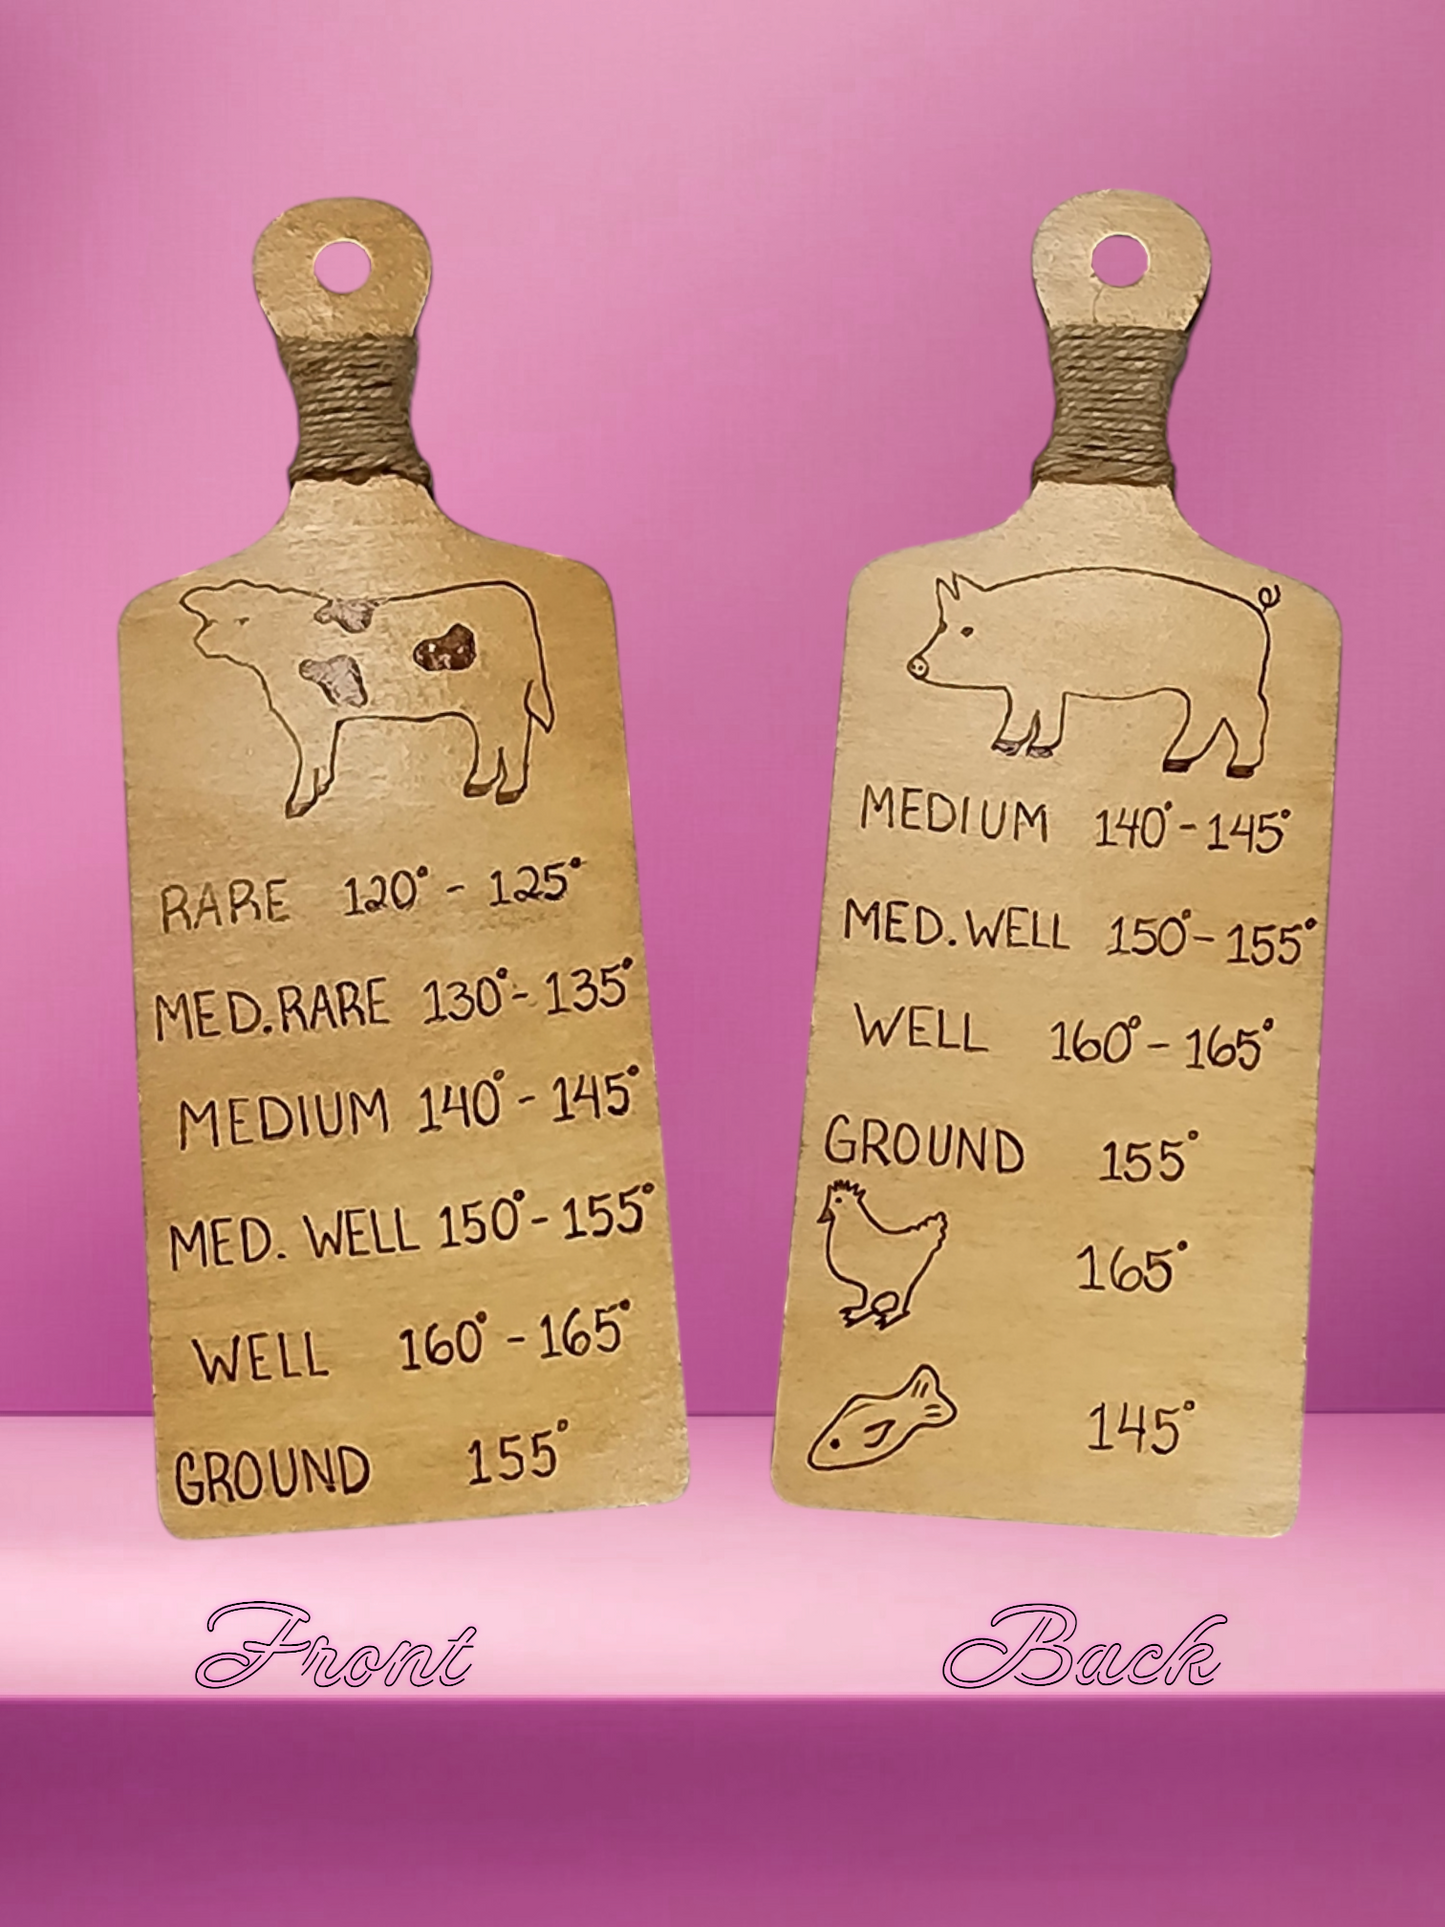 RARE 120° - 125°
MED.RARE 130° - 135°
MEDIUM 140° - 145°
MED. WELL 150° - 155°
WELL 160° - 165°
GROUND 155°
MEDIUM 140° - 145°
MED. WELL 150° - 155°
WELL 160° - 165°
GROUND 155°
165°
145°
Front
Back